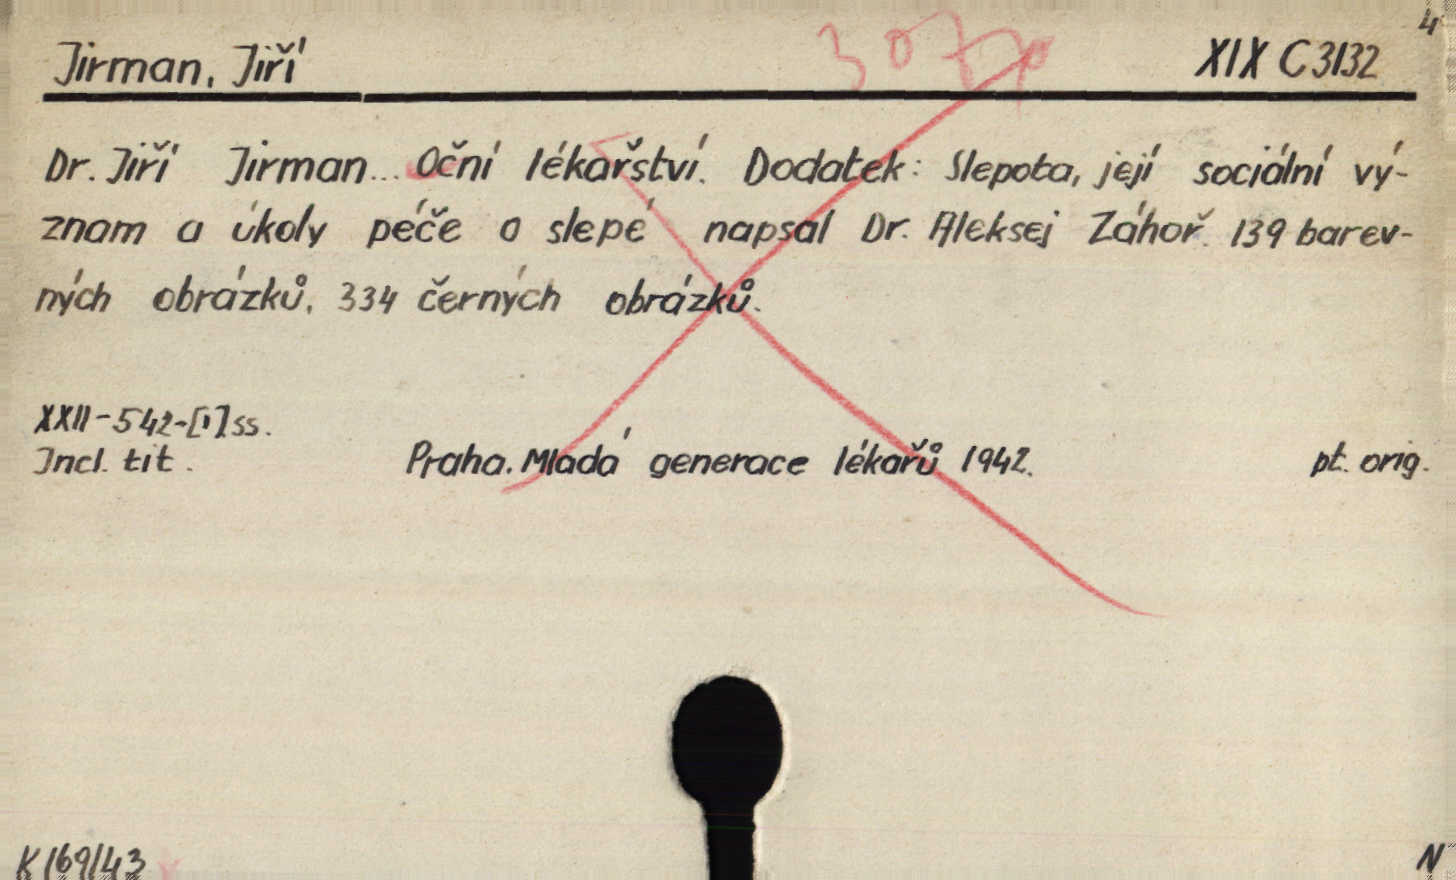 4
Jirman, Jiří XIX C 3132
Dr. Jiří Jirman... Oční lékařství. Dodatek: Slepota, její sociální vý-
znam a úkoly péče o slepé napsal Dr. Aleksej Záhoř. 139 barev-
ných obrázků, 334 černých obrázků.
XXII-542-[1] ss.
Incl. tit. Praha. Mladá generace lékařů 1942. pt. orig.
K169/43 N